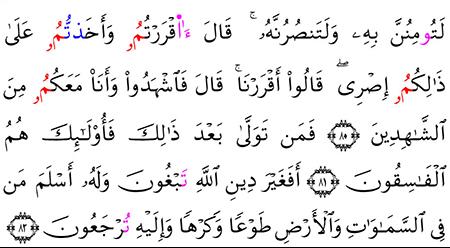 لَتُومِنُنَّ بِهِۦ وَلَتَنصُرُنَّهُۥۚ قَالَ ءَاقْرَرْتُمُۥ وَأَخَذتُّمُۥ عَلَىٰ
ذَٰلِكُمُۥ إِصْرِىۖ قَالُوا۟ أَقْرَرْنَاۚ قَالَ فَٱشْهَدُوا۟ وَأَنَا۠ مَعَكُمُۥ مِنَ
ٱلشَّٰهِدِينَ ٨٠ فَمَن تَوَلَّىٰ بَعْدَ ذَٰلِكَ فَأُو۟لَٰٓئِكَ هُمُ
ٱلْفَٰسِقُونَ ٨١ أَفَغَيْرَ دِينِ ٱللَّهِ تَبْغُونَ وَلَهُۥ أَسْلَمَ مَن
فِى ٱلسَّمَٰوَٰتِ وَٱلْأَرْضِ طَوْعًا وَكَرْهًا وَإِلَيْهِ تُرْجَعُونَ ٨٢